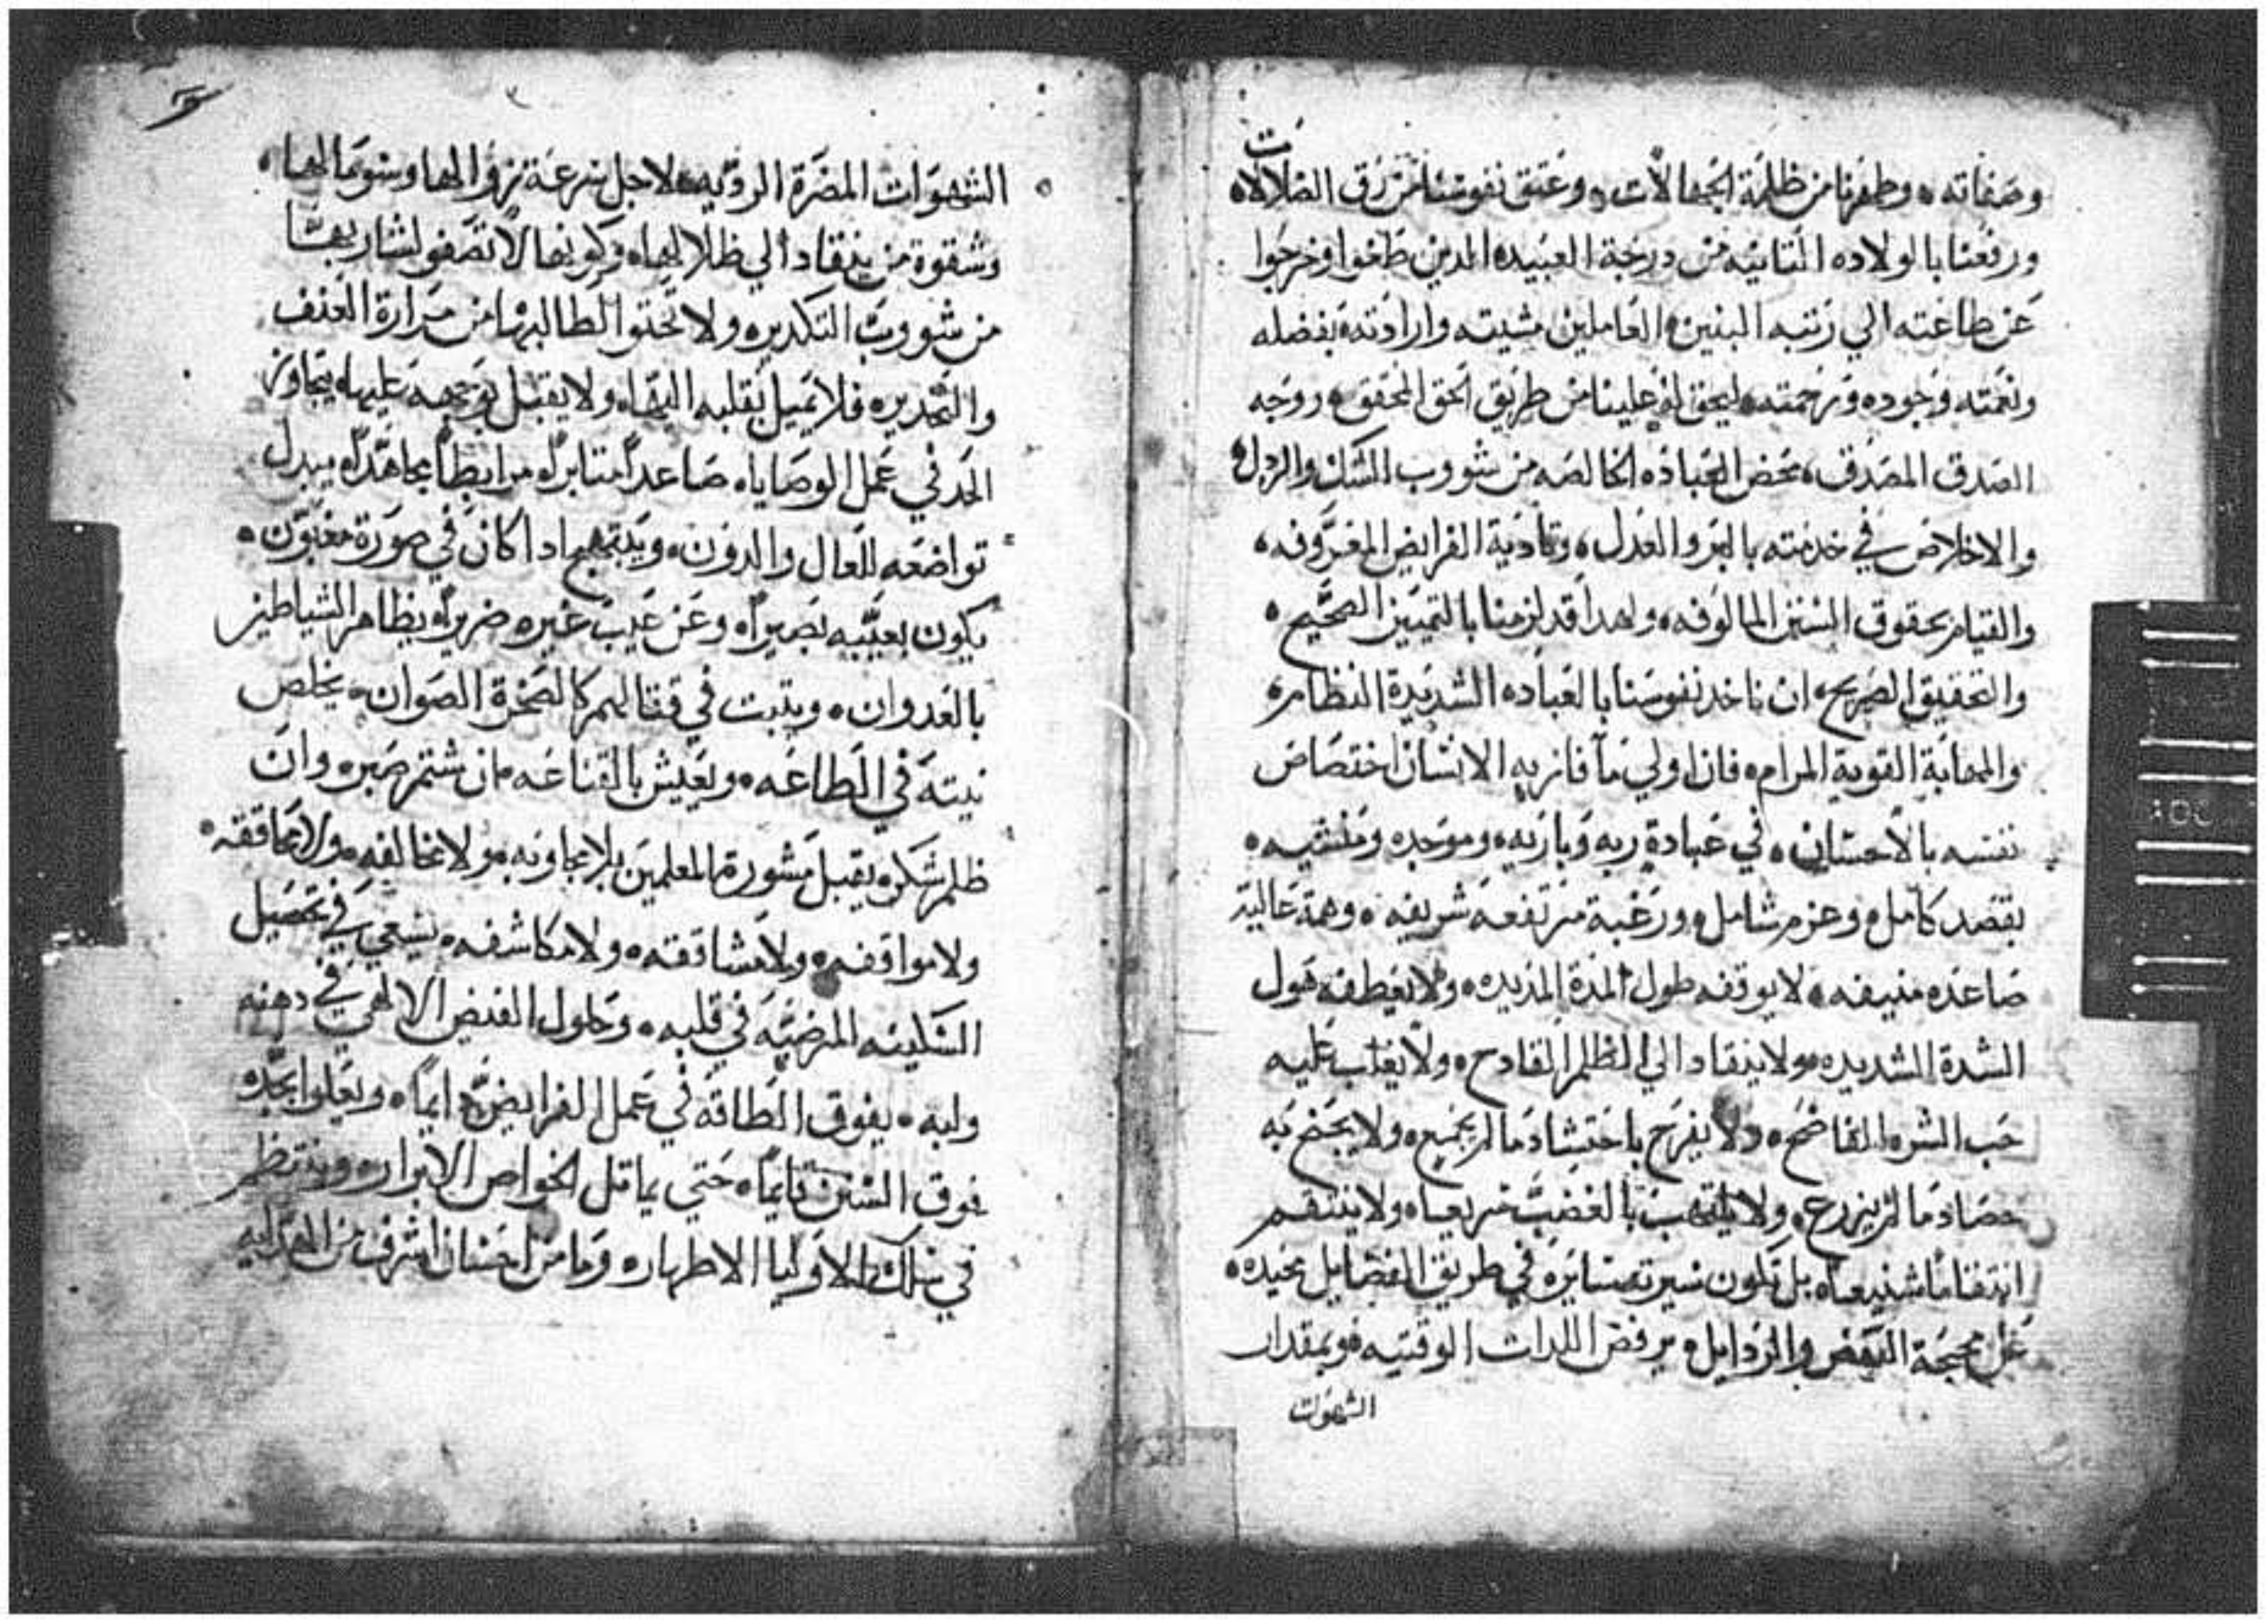 وصفاته ٥ وطهرنا من ظلمة الجهالات ٥ وعتق نفوسنا من رق الضلالات
ورفعنا بالولاده الثانيه من درجة العبيد ٥ الدين طغوا وخرجوا
عن طاعته الي رتبه البنين ٥ العاملين مشيته وارادته ٥ بفضله
ونعمته وجوده ورحمته ٥ ليحق له علينا من طريق الحق المحقق ٥ ووجه
الصدق المصدق ٥ محض العباده الخالصه من شووب الشك والزلل ٥
والاخلاص في خدمته بالبر والعدل ٥ وتادية الفرايض المعروفه ٥
والقيام بحقوق السنن المالوفه ٥ ولهدا قد لزمنا بالتمييز الصحيح ٥
والتحقيق الصريح ٥ ان ناخد نفوسنا بالعباده الشديدة النظام ٥
القوية المرام ٥ فان اولي ما فاز به الانسان اختصاص
نفسه بالاحسان ٥ في عبادة ربه وباريه ٥ وموجده ومنشيه ٥
بقصد كامل ٥ وعزم شامل ٥ ورغبة مرتفعه شريفه ٥ وهمة عالية
صاعده منيفه ٥ لا يوقفه طول المدة المديده ٥ ولا يعطفه هول
الشدة الشديده ٥ ولا ينقاد الي الظلم القادح ٥ ولا يغلب عليه
حب الشره الفاضح ٥ ولا يفرح باحتشاد ما لم يجمع ٥ ولا يجنح به
حصاد ما لم يزرع ٥ ولا يلتهب بالغضب سريعا ٥ ولا ينتقم
انتقاما شنيعا ٥ بل تكون سيرته سايره في طريق الفضايل محيده ٥
عن محجة النقص والرذايل ٥ يرفض اللدات الوقتيه ٥ وبمقدار
الشهوات
الشهوات المضرة الرديه ٥ لاجل سرعة زوالها وسو مالها ٥
وشقوة من ينقاد الي ظلالها ٥ وكونها لا تصفو لشاربها
من شووب التكدير ٥ ولا تحتو لطالبها من مرارة العنف
والتحدير ٥ فلا يميل بقلبه اليها ٥ ولا يقبل بوجهه عليها ٥ يتجاوز
الحد في عمل الوصايا ٥ صاعدا مثابرا ٥ مرابطا مجاهدا ٥ يبدل
تواضعه للعال والدون ٥ ويبتهج ادا كان في صورة مغبون ٥
يكون بعيبه بصيرا ٥ وعن عيب غيره ضريرا ٥ يظاهر الشياطين
بالعدوان ٥ ويثبت في قتالهم كالصخرة الصوان ٥ يخلص
نيته في الطاعه ٥ ويعيش بالقناعه ٥ ان شتم صبر ٥ وان
ظلم شكر ٥ يقبل مشورة المعلمين بلا مجاوبه ٥ ولا مخالفه ٥ ولا محاققه ٥
ولا مواقفه ٥ ولا مشاققه ٥ ولا مكاشفه ٥ يسعي في تحصيل
السكينه المرضيه في قلبه ٥ وحلول الفيض الالهي في دهنه
ولبه ٥ يفوق الطاقه في عمل الفرايض دايما ٥ ويعلوا بجده
فوق السنن قايما ٥ حتي يماثل الخواص الابرار ٥ وينتظم
في سلك الاوليا الاطهار ٥ وما من احسان اشرف من الهدايه